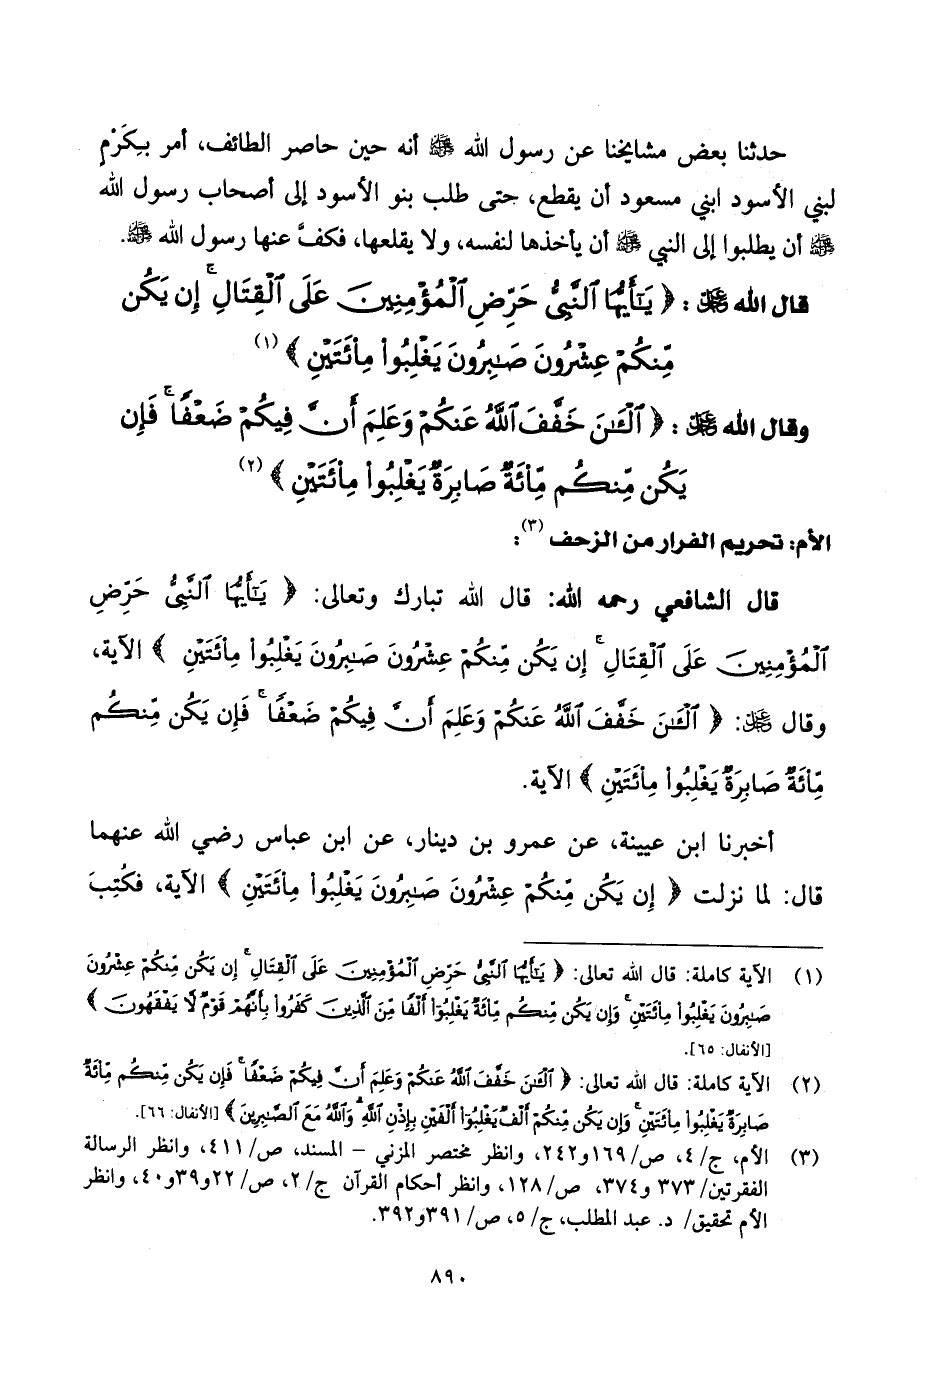 حدثنا بعض مشايخنا عن رسول الله ﷺ أنه حين حاصر الطائف، أمر بِكَرْمٍ
لبني الأسود ابني مسعود أن يقطع، حتى طلب بنو الأسود إلى أصحاب رسول الله
ﷺ أن يطلبوا إلى النبي ﷺ أن يأخذها لنفسه، ولا يقلعها، فكفَّ عنها رسول الله ﷺ.
قال الله ﷻ: ﴿ يَـٰٓأَيُّهَا ٱلنَّبِىُّ حَرِّضِ ٱلْمُؤْمِنِينَ عَلَى ٱلْقِتَالِ ۚ إِن يَكُن
مِّنكُمْ عِشْرُونَ صَـٰبِرُونَ يَغْلِبُوا۟ مِا۟ئَتَيْنِ ﴾ (١)
وقال الله ﷻ: ﴿ ٱلْـَٔـٰنَ خَفَّفَ ٱللَّهُ عَنكُمْ وَعَلِمَ أَنَّ فِيكُمْ ضَعْفًا ۚ فَإِن
يَكُن مِّنكُم مِّا۟ئَةٌ صَابِرَةٌ يَغْلِبُوا۟ مِا۟ئَتَيْنِ ﴾ (٢)
الأم: تحريم الفرار من الزحف (٣):
قال الشافعي رحمه الله: قال الله تبارك وتعالى: ﴿ يَـٰٓأَيُّهَا ٱلنَّبِىُّ حَرِّضِ
ٱلْمُؤْمِنِينَ عَلَى ٱلْقِتَالِ ۚ إِن يَكُن مِّنكُمْ عِشْرُونَ صَـٰبِرُونَ يَغْلِبُوا۟ مِا۟ئَتَيْنِ ﴾ الآية،
وقال ﷻ: ﴿ ٱلْـَٔـٰنَ خَفَّفَ ٱللَّهُ عَنكُمْ وَعَلِمَ أَنَّ فِيكُمْ ضَعْفًا ۚ فَإِن يَكُن مِّنكُم
مِّا۟ئَةٌ صَابِرَةٌ يَغْلِبُوا۟ مِا۟ئَتَيْنِ ﴾ الآية.
أخبرنا ابن عيينة، عن عمرو بن دينار، عن ابن عباس رضي الله عنهما
قال: لما نزلت ﴿ إِن يَكُن مِّنكُمْ عِشْرُونَ صَـٰبِرُونَ يَغْلِبُوا۟ مِا۟ئَتَيْنِ ﴾ الآية، فكُتِبَ
(١) الآية كاملة: قال الله تعالى: ﴿ يَـٰٓأَيُّهَا ٱلنَّبِىُّ حَرِّضِ ٱلْمُؤْمِنِينَ عَلَى ٱلْقِتَالِ ۚ إِن يَكُن مِّنكُمْ عِشْرُونَ
صَـٰبِرُونَ يَغْلِبُوا۟ مِا۟ئَتَيْنِ ۚ وَإِن يَكُن مِّنكُم مِّا۟ئَةٌ يَغْلِبُوٓا۟ أَلْفًا مِّنَ ٱلَّذِينَ كَفَرُوا۟ بِأَنَّهُمْ قَوْمٌ لَّا يَفْقَهُونَ ﴾
[الأنفال: ٦٥].
(٢) الآية كاملة: قال الله تعالى: ﴿ ٱلْـَٔـٰنَ خَفَّفَ ٱللَّهُ عَنكُمْ وَعَلِمَ أَنَّ فِيكُمْ ضَعْفًا ۚ فَإِن يَكُن مِّنكُم مِّا۟ئَةٌ
صَابِرَةٌ يَغْلِبُوا۟ مِا۟ئَتَيْنِ ۚ وَإِن يَكُن مِّنكُمْ أَلْفٌ يَغْلِبُوٓا۟ أَلْفَيْنِ بِإِذْنِ ٱللَّهِ ۗ وَٱللَّهُ مَعَ ٱلصَّـٰبِرِينَ ﴾ [الأنفال: ٦٦].
(٣) الأم، ج/ ٤، ص/ ١٦٩ و٢٤٢، وانظر مختصر المزني – المسند، ص/ ٤١١، وانظر الرسالة
الفقرتين/ ٣٧٣ و٣٧٤، ص/ ١٢٨، وانظر أحكام القرآن ج/ ٢، ص/ ٢٢ و٣٩ و٤٠، وانظر
الأم تحقيق/ د. عبد المطلب، ج/ ٥، ص/ ٣٩١ و٣٩٢.
٨٩٠